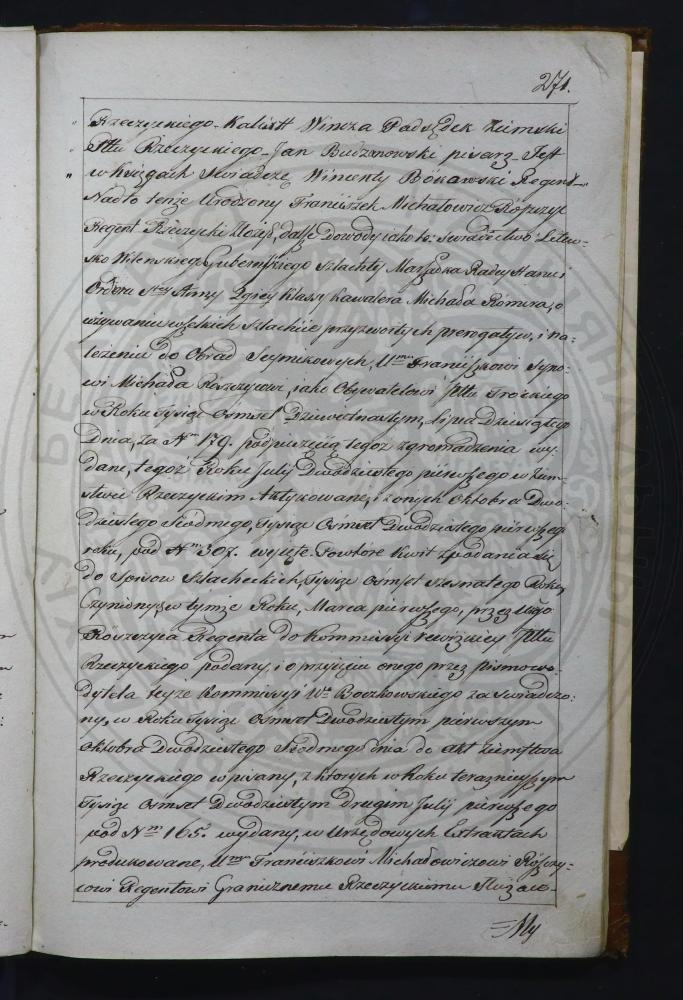 271.
Rzeczyckiego - Kalixt Wincza Podsędek Ziemski
Pttu Rzeczyckiego - Jan Budzanowski pisarz - Jest
w Księgach Swiadczę Wincenty Bokawski Regent -
Nadto tenże Urodzony Franciszek Michałowicz Rószczyc
Regent Rzeczycki złożył, dalsze Dowody iako to: Swiadectwo Litew-
sko Wilenskiego Gubernskiego Szlachty Marszałka Radcy Stanu i
Orderu Stey Anny 2giey Klassy Kawalera Michała Romera, o
używaniu wszelkich Szlachcie przyzwoitych prerogatyw, i na-
leżeniu do Obrad Seymikowych, Umu Franciszkowi Syno-
wi Michała Roszczycowi, iako Obywatelowi Pttu Trockiego
w Roku Tysiąc Ośmset Dziewietnastym, Lipca Dziesiątego
Dnia, za Nm 179. podpieczęcią tegoż zgromadzenia wy-
dane, tegoż Roku Julij Dwódziestego pierwszego w Ziem-
stwie Rzeczyckim Aktykowane, i z onych Oktobra Dwó-
dziestego Siódmego, Tysiąc Ośmset Dwódziestego pierwszego
roku, pod Nm 307. wyjęte. Powtóre Kwit z podania się
do Spisow Szlacheckich, Tysiąc Ośmset szesnastego Roku
Czyniony, w tymże Roku, Marca pierwszego, przez Ugo
Rószczyca Regenta do Kommissyi rewizkiey Pttu
Rzeczyckiego podany, i o przyięciu onego przez pismowo-
dytela teyże Kommissyi Wo Boczkowskiego zaswiadczo-
ny, w Roku Tysiąc Ośmset Dwódziestym pierwszym
Oktobra Dwódziestego Siódmego dnia do Akt Ziemstwa
Rzeczyckiego wpisany, z ktorych w Roku teraznieyszym
Tysiąc Ośmset Dwódziestym drugim Julij pierwszego
pod Nm 165. wydany, w Urzędowych Extraktach
produkowane, Umu Franciszkowi Michałowiczowi Rószczy-
cowi Regentowi Granicznemu Rzeczyckiemu Służące -
= My